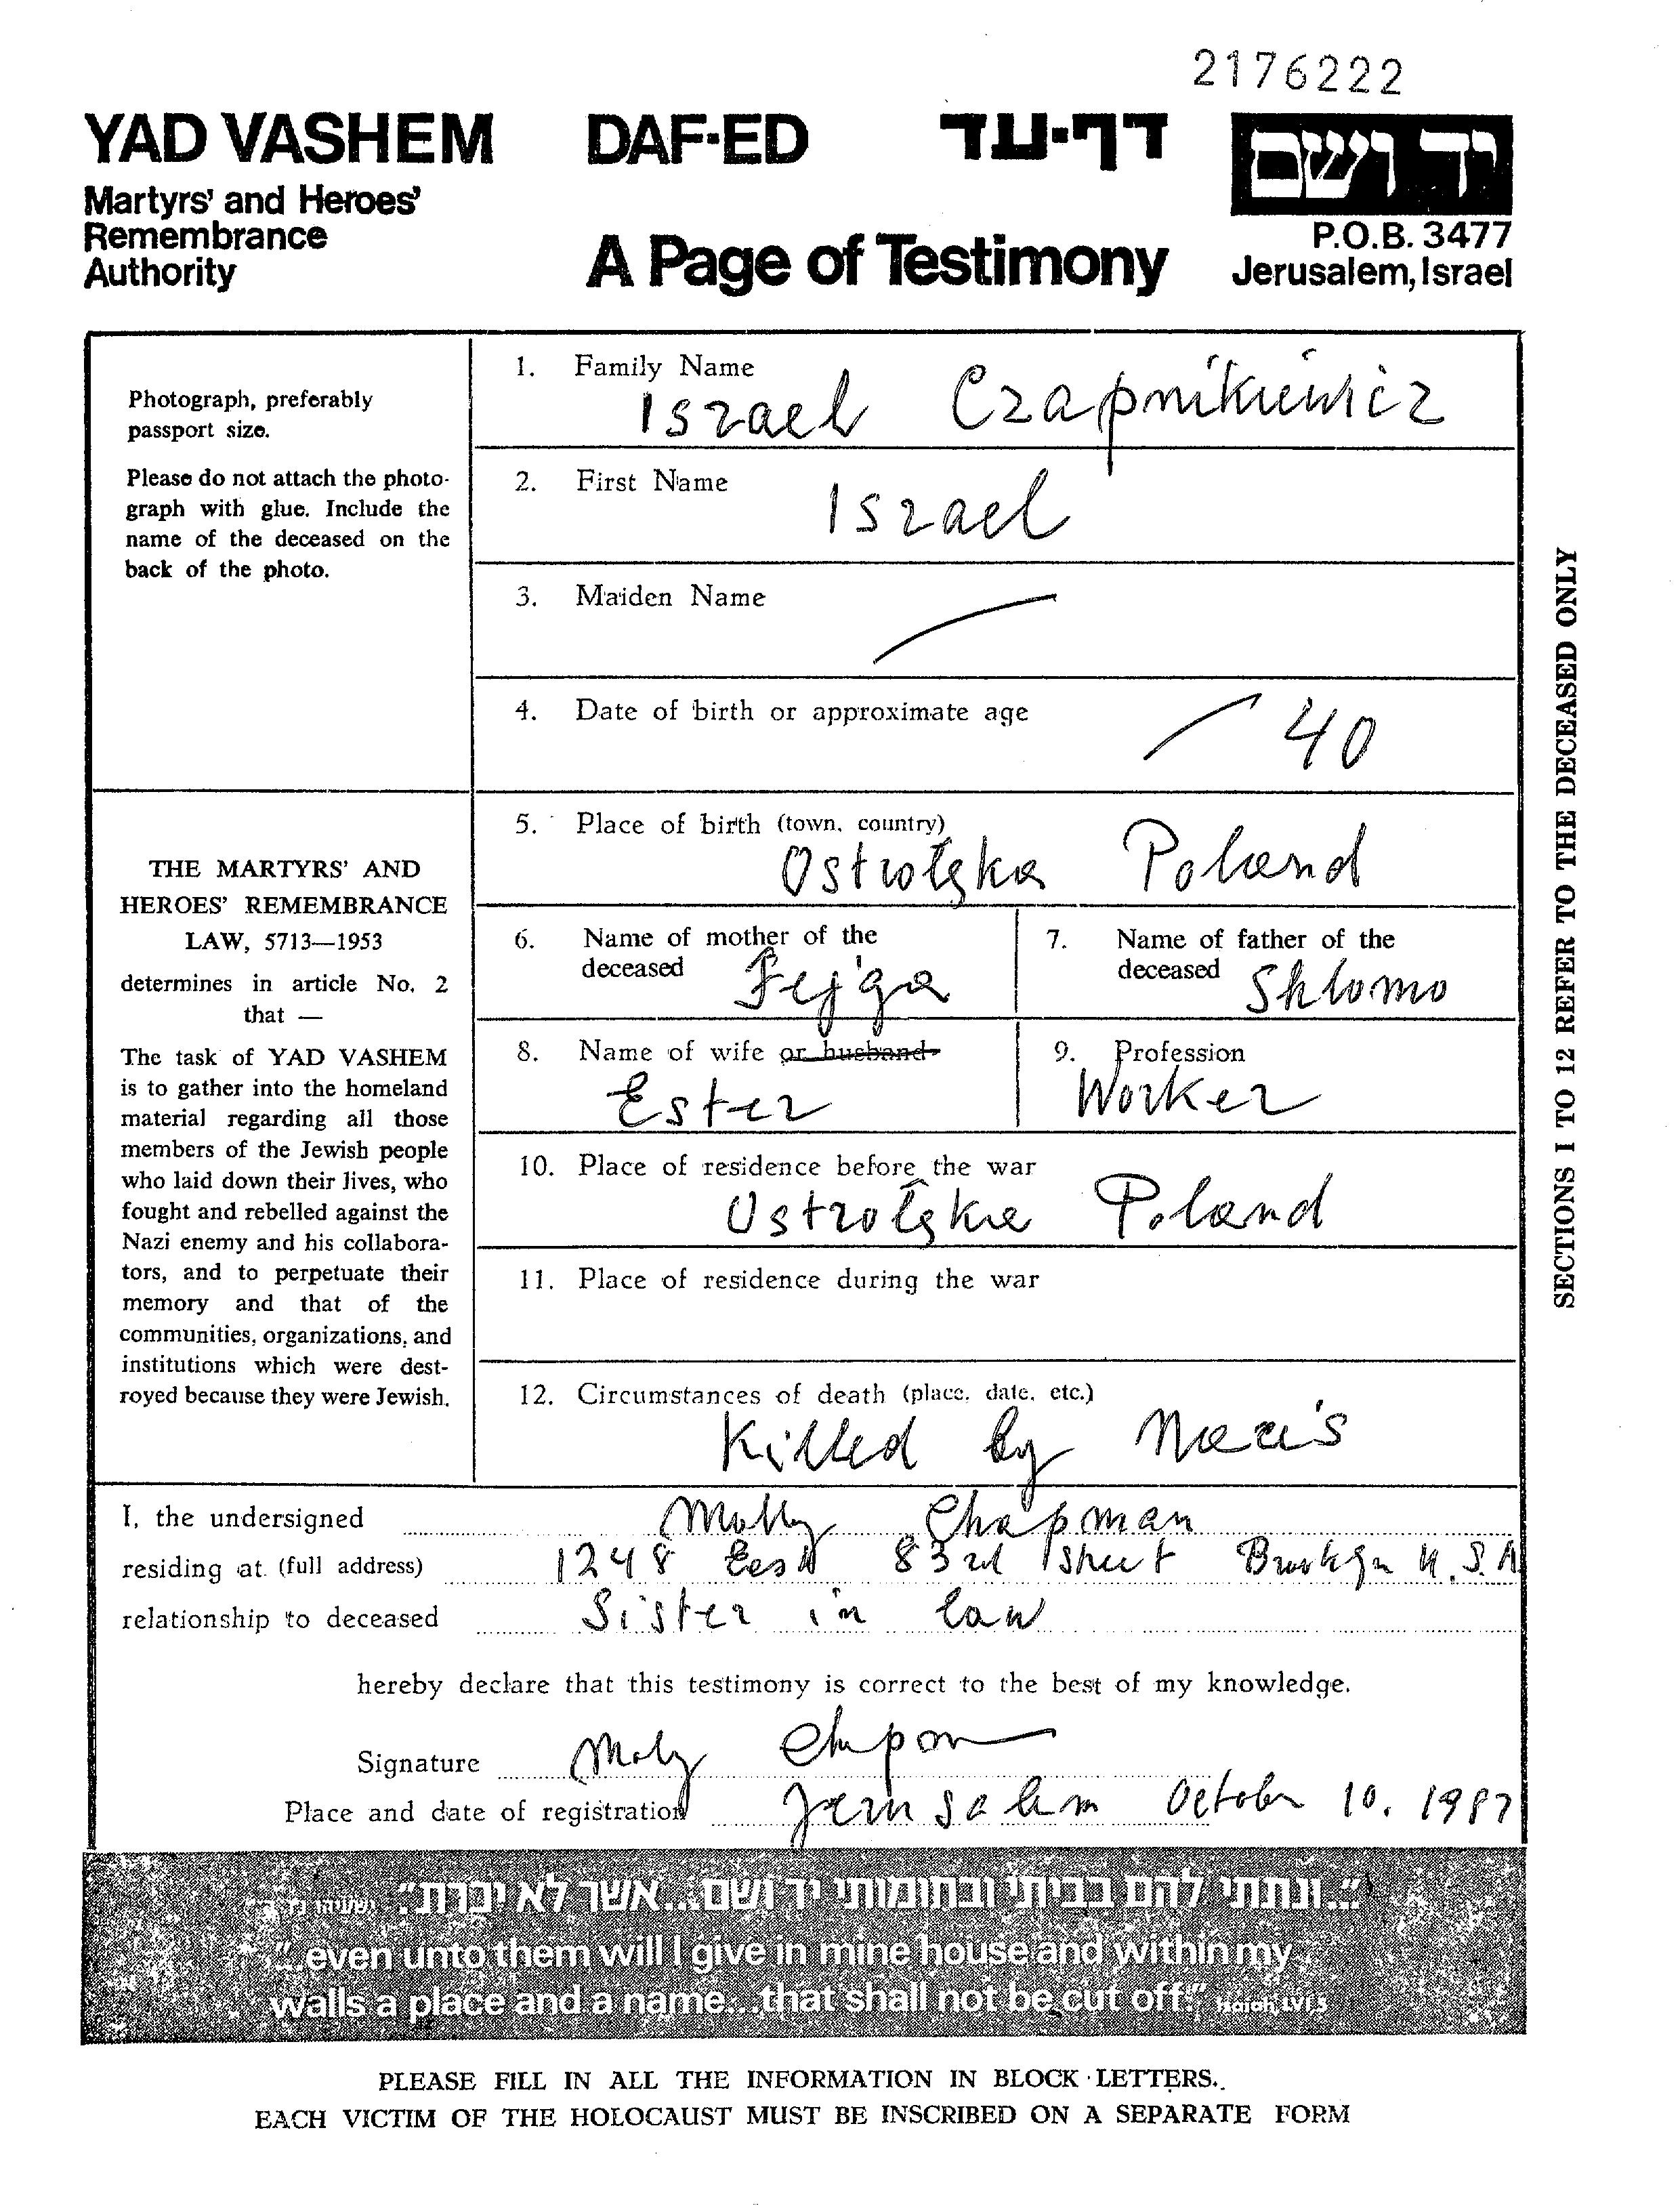 2176222
YAD VASHEM DAF-ED דף-עד יד ושם
Martyrs' and Heroes'
Remembrance
Authority
A Page of Testimony
P.O.B. 3477
Jerusalem, Israel
Photograph, preferably
passport size.
Please do not attach the photo-
graph with glue. Include the
name of the deceased on the
back of the photo.
THE MARTYRS' AND
HEROES' REMEMBRANCE
LAW, 5713—1953
determines in article No. 2
that —
The task of YAD VASHEM
is to gather into the homeland
material regarding all those
members of the Jewish people
who laid down their lives, who
fought and rebelled against the
Nazi enemy and his collabora-
tors, and to perpetuate their
memory and that of the
communities, organizations, and
institutions which were dest-
royed because they were Jewish.
1. Family Name
Iszael Czapnikiewicz
2. First Name
Iszael
3. Maiden Name
4. Date of birth or approximate age
40
5. Place of birth (town, country)
Ostrołęka Poland
6. Name of mother of the
deceased Fejga
7. Name of father of the
deceased Shlomo
8. Name of wife or husband
Ester
9. Profession
Worker
10. Place of residence before the war
Ostrołęka Poland
11. Place of residence during the war
12. Circumstances of death (place, date, etc.)
Killed by Nazis
SECTIONS 1 TO 12 REFER TO THE DECEASED ONLY
I, the undersigned Molly Chapman
residing at (full address) 1248 East 83rd Street Brooklyn U.S.A
relationship to deceased Sister in law
hereby declare that this testimony is correct to the best of my knowledge.
Signature Moly
Place and date of registration Jerusalem October 10. 1987
"...ונתתי להם בביתי ובחומותי יד ושם...אשר לא יכרת".
"...even unto them will I give in mine house and within my
walls a place and a name...that shall not be cut off." Isaiah, LVI,5
PLEASE FILL IN ALL THE INFORMATION IN BLOCK LETTERS.
EACH VICTIM OF THE HOLOCAUST MUST BE INSCRIBED ON A SEPARATE FORM